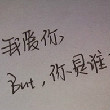 我爱你,
But, 你是谁?